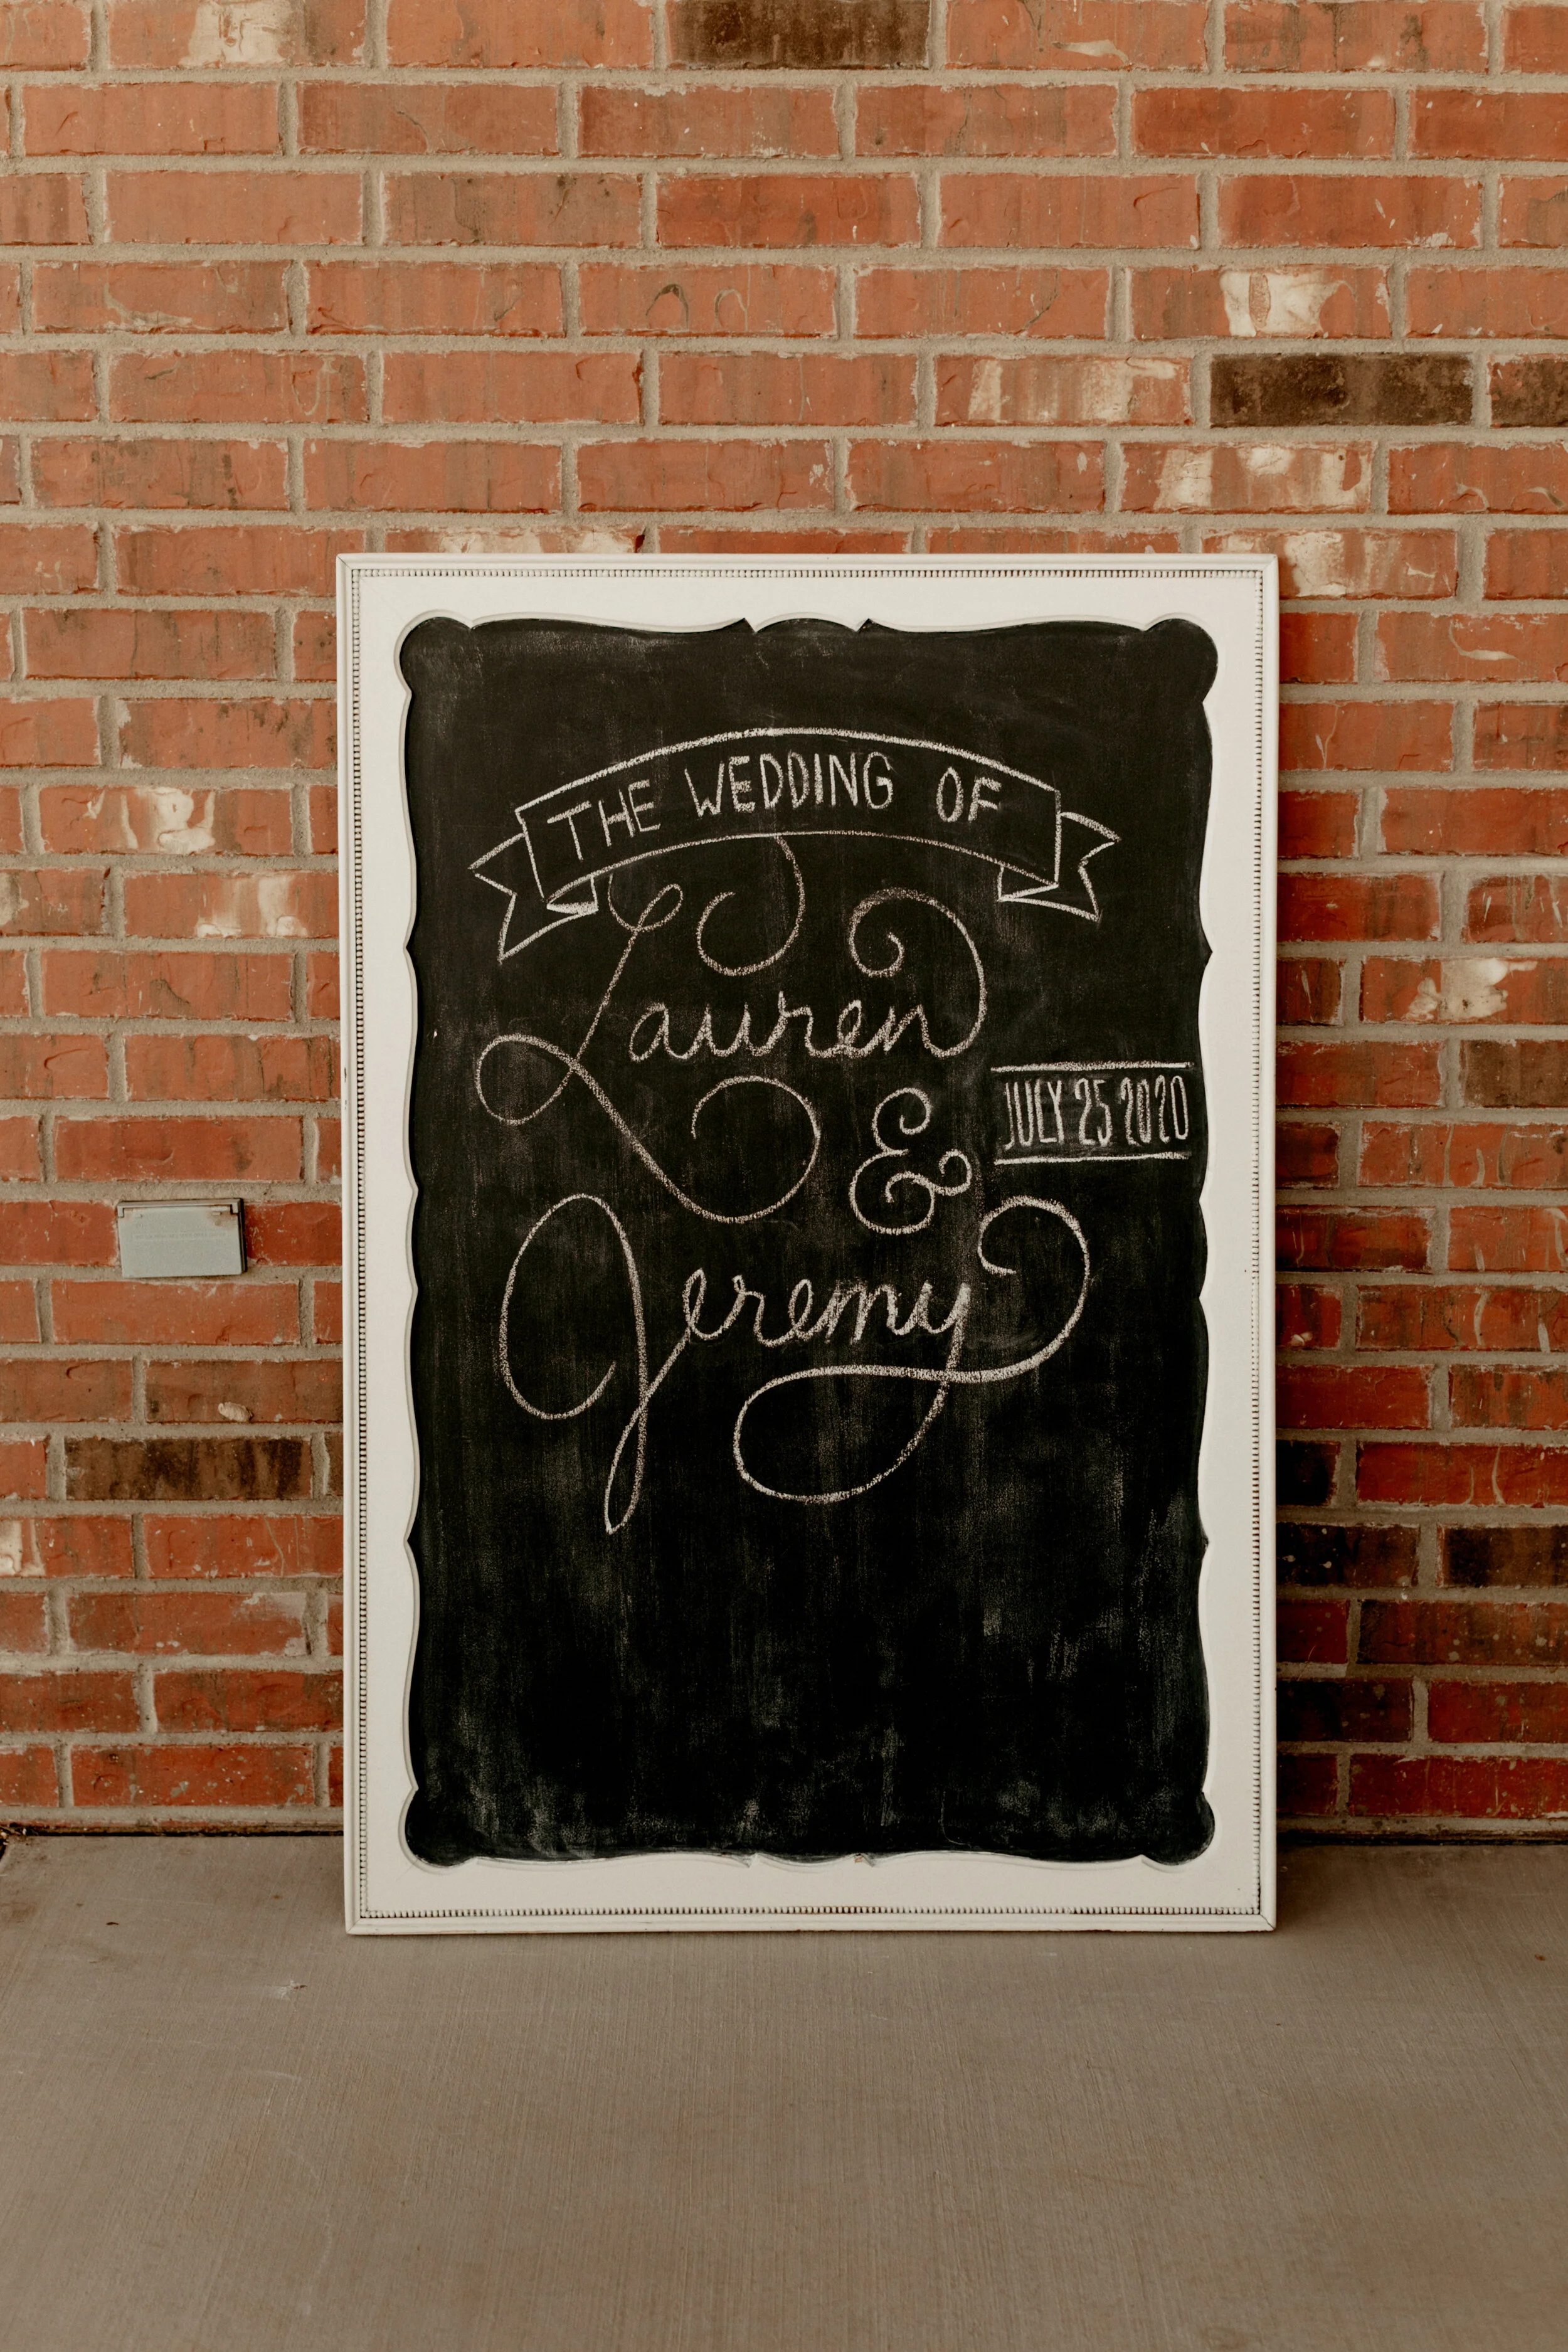 THE WEDDING OF
Lauren
&
JULY 25 2020
Jeremy